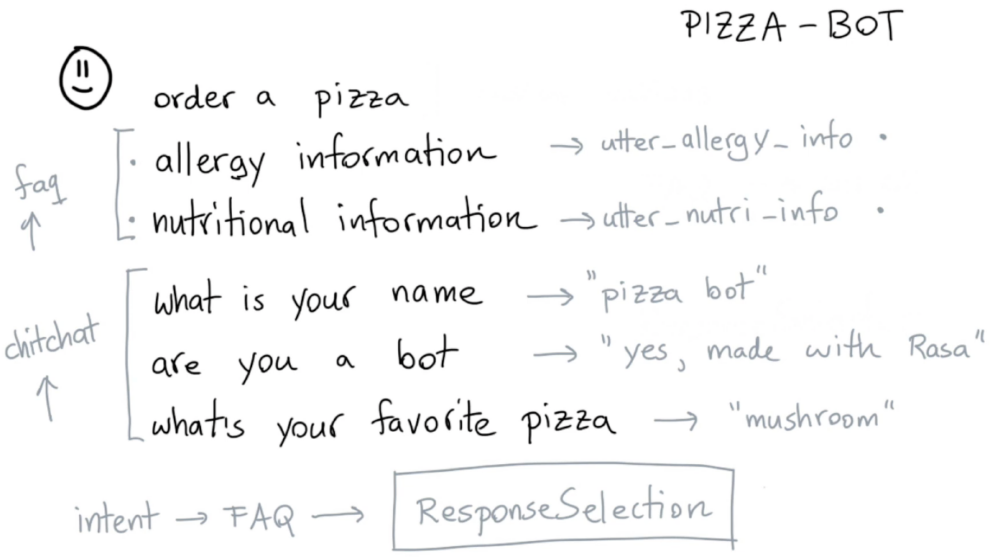 PIZZA - BOT
order a pizza
faq
· allergy information → utter_allergy_info ·
· nutritional information → utter_nutri_info ·
chitchat
what is your name → "pizza bot"
are you a bot → "yes, made with Rasa"
what's your favorite pizza → "mushroom"
intent → FAQ → ResponseSelection